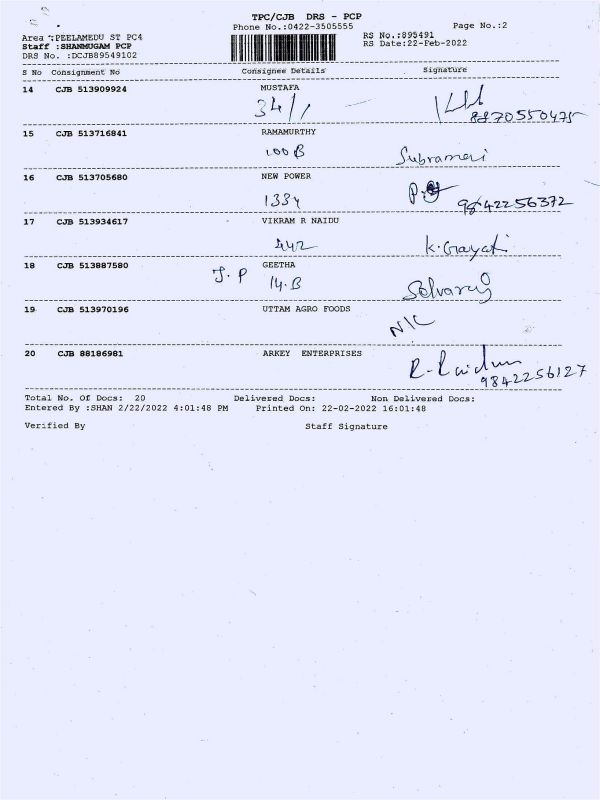 TPC/CJB DRS - PCP
Phone No.:0422-3505555 Page No.:2
Area :PEELAMEDU ST PC4 RS No.:895491
Staff :SHANMUGAM PCP RS Date:22-Feb-2022
DRS No. :DCJB89549102
S No Consignment No Consignee Details Signature
14 CJB 513909924 MUSTAFA
34/1
8870550475
15 CJB 513716841 RAMAMURTHY
100 B Subramani
16 CJB 513705680 NEW POWER
1334 9842256372
17 CJB 513934617 VIKRAM R NAIDU
442 K.Gayatri
18 CJB 513887580 GEETHA
J.P 14.B Selvaraj
19 CJB 513970196 UTTAM AGRO FOODS
N/C
20 CJB 88186981 ARKEY ENTERPRISES
9842256127
Total No. Of Docs: 20 Delivered Docs: Non Delivered Docs:
Entered By :SHAN 2/22/2022 4:01:48 PM Printed On: 22-02-2022 16:01:48
Verified By Staff Signature